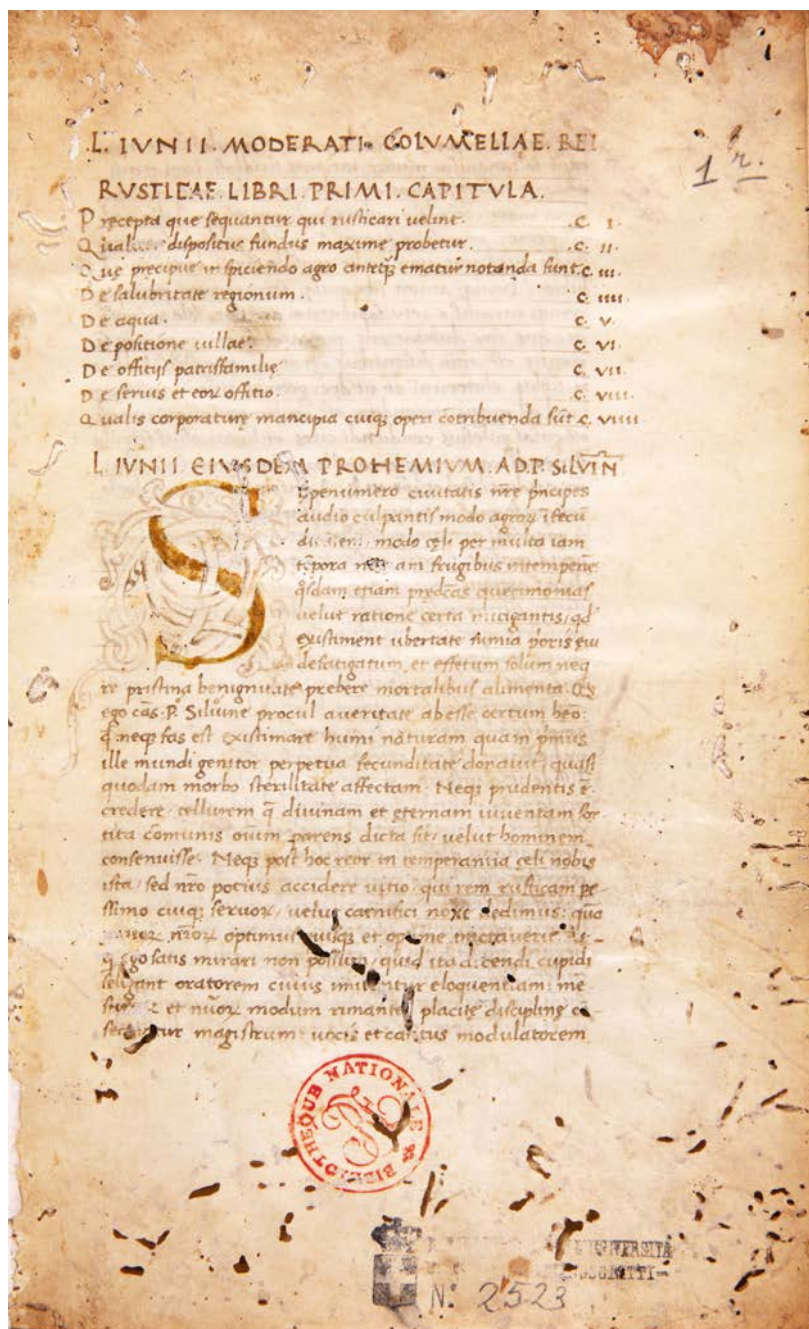 .L. IVNII. MODERATI. COLVMELLAE. REI
RVSTICAE. LIBRI. PRIMI. CAPITVLA.
1 r.
Precepta que sequantur qui rusticari uelint. .C. I.
Qual dispositus fundus maxime probetur. .C. II.
Que precipue inspiciendo agro anteq; ematur notanda sunt. C. III.
De salubritate regionum. C. IIII.
De aqua. C. V.
De positione uillae. C. VI.
De offitijs patrisfamilię C. VII.
De seruis et eoꝝ offitio. .C. VIII.
Qualis corporaturę mancipia cuiq; operi cōtribuenda sūt C. VIIII.
L IVNII EIVSDEM PROHEMIVM. AD. P. SILVIN̄
Sępenumero ciuitatis nr̄e pͥncipes
audio culpantis modo agroꝝ īfecū
modo cęli per multa iam
tēpora am frugibus intemperiē
qͦsdam etiam
uelut ratione certa mitigantis, qd̓
existiment ubertate
defatigatum et effetum solum neq
re pristina benignitate prebere mortalibus alimenta.
ego P. Siluine procul aueritate abesse certum
neq; fas est existimare humi naturam quam pͥmus
ille mundi genitor perpetua fecunditate donauit, quasi
quodam morbo sterilitate affectam. Neq; prudentis ē.
credere tellurem q̄ diuinam et ęternam iuuentam sor-
tita cōmunis oīum parens dicta sit, uelut hominem
consenuisse. Neq; post hoc reor in temperantia cęli nobis
ista, sed nr̄o potius accidere uitio, qui rem rusticam pe-
ssimo cuiq; seruoꝝ, uelut carnifici dedimus: quā
nr̄oꝝ optimus quisq; et optime tractauerit.
ego satis mirari non possum, quid ita dicendi cupidi
seligant oratorem cuius imitentur eloquentiam: me-
et nūoꝝ modum rimantes placitę disciplinę cō-
sectentur magistrum: uocis et cantus modulatorem
BIBLIOTHEQUE NATIONALE
L'UNIVERSITÀ
N: 2523